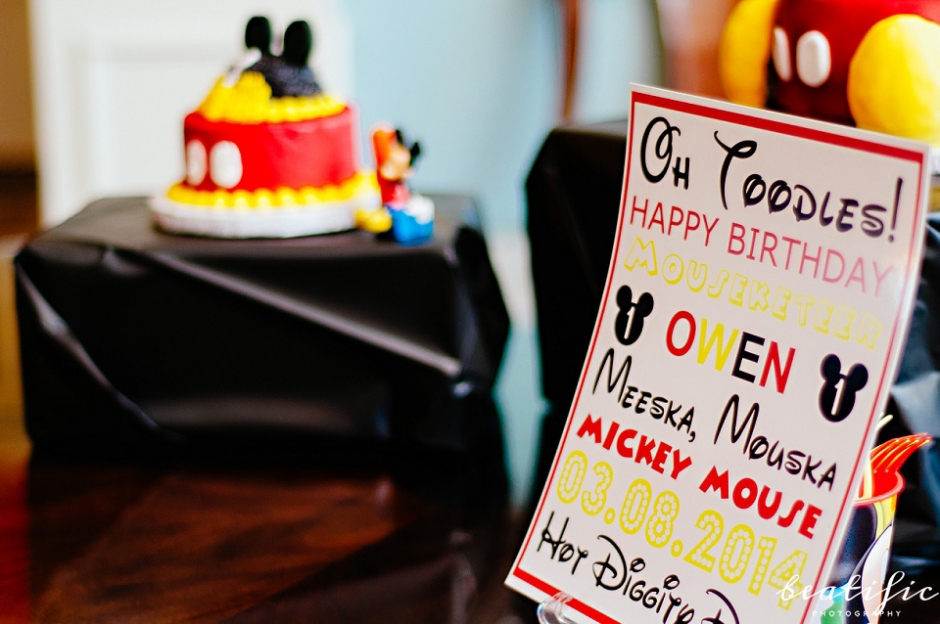 Oh Toodles!
HAPPY BIRTHDAY
MOUSEKETEER
1 OWEN 1
MEESKA, MOUSKA
MICKEY MOUSE
03.08.2014
HOT DIGGITY D
beatific
PHOTOGRAPHY